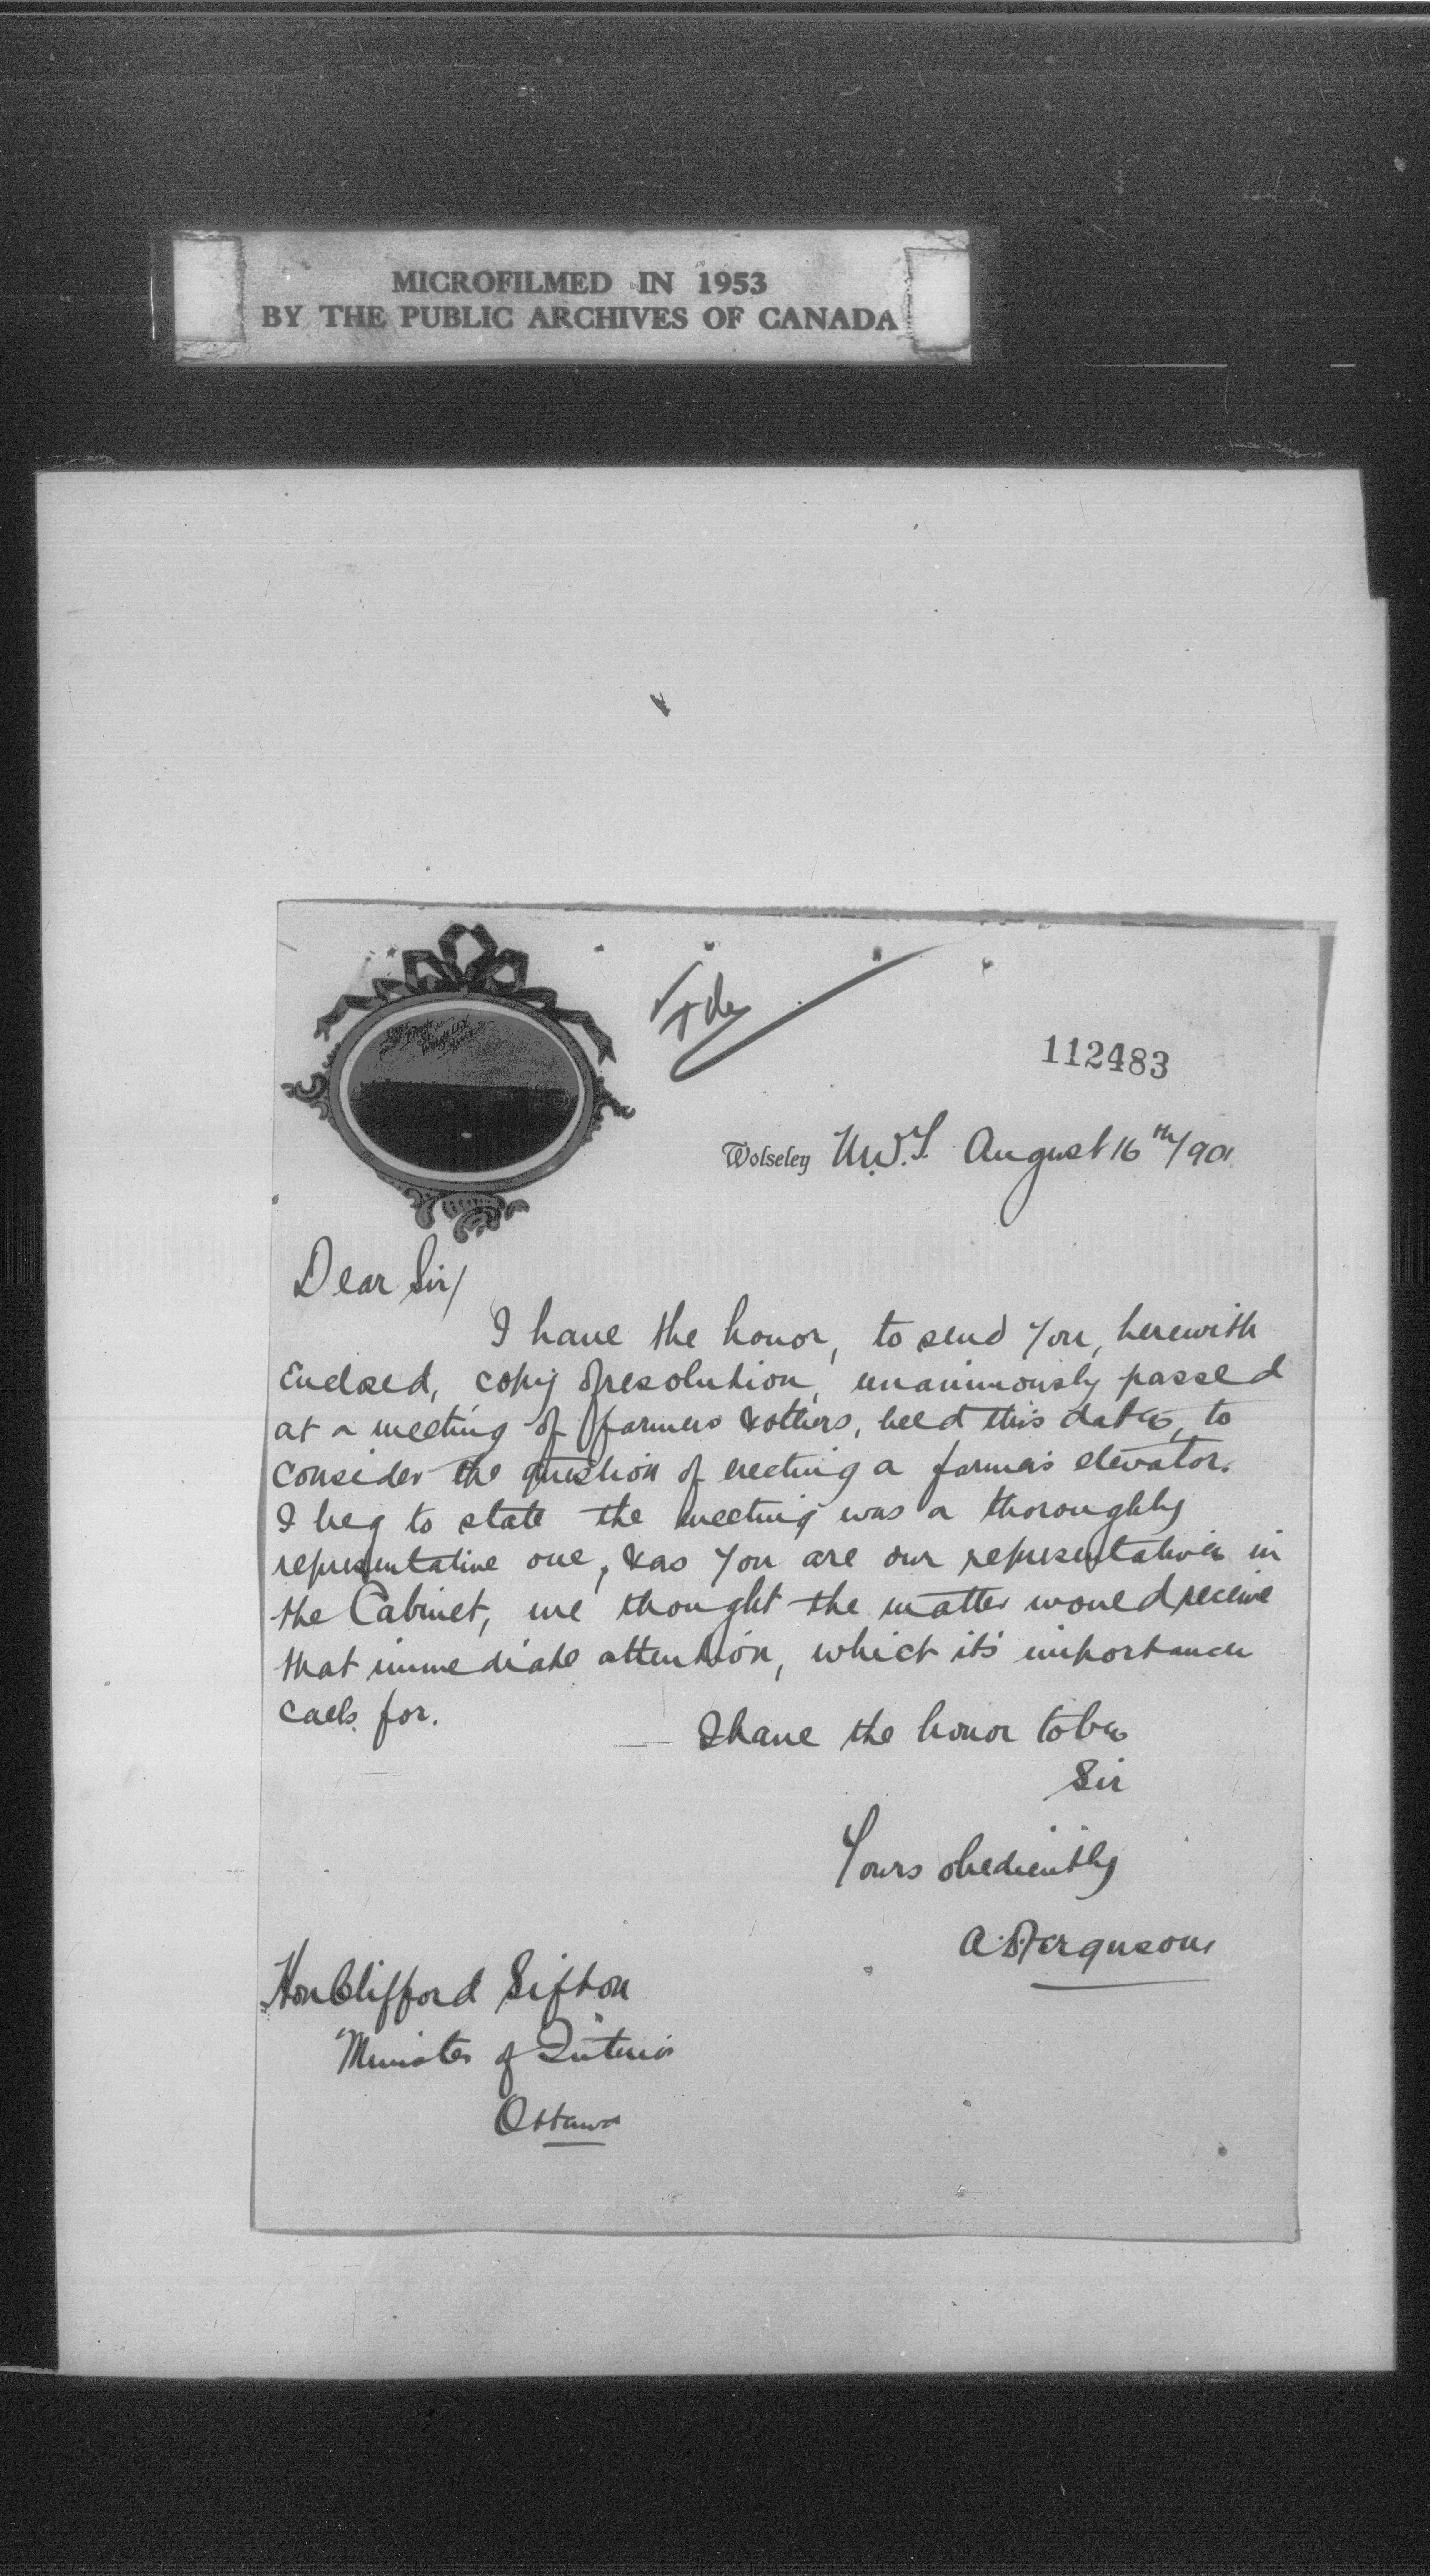 MICROFILMED IN 1953
BY THE PUBLIC ARCHIVES OF CANADA
FRONT
ST.
WOLSELEY
N.W.T.
112483
Wolseley N.W.T. August 16th/901
Dear Sir/
I have the honor, to send You, herewith
Enclosed, copy of resolution, unanimously passed
at a meeting of farmers & others, held this date, to
consider the question of erecting a farmers elevator.
I beg to state the meeting was a thoroughly
representative one, & as You are our representative in
the Cabinet, we thought the matter would receive
that immediate attention, which it's importance
calls for.
I have the honor to be
Sir
Yours obediently
A. D. Ferguson
Hon Clifford Sifton
Minister of Interior
Ottawa